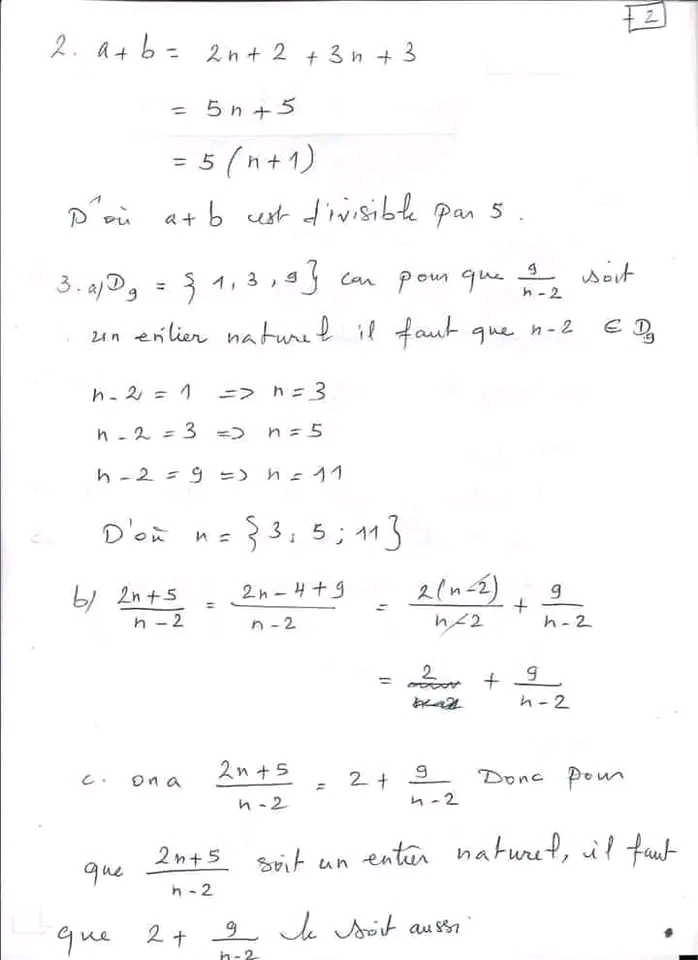 F2
2. a + b = 2n + 2 + 3n + 3
= 5n + 5
= 5 (n + 1)
D'où a + b est divisible par 5.
3. a/ D₉ = {1, 3, 9} car pour que 9/(n-2) soit
un entier naturel il faut que n-2 ∈ D₉
n - 2 = 1 => n = 3
n - 2 = 3 => n = 5
n - 2 = 9 => n = 11
D'où n = {3; 5; 11}
b/ (2n+5)/(n-2) = (2n-4+9)/(n-2) = 2(n-2)/(n-2) + 9/(n-2)
= 2 + 9/(n-2)
c. on a (2n+5)/(n-2) = 2 + 9/(n-2) Donc pour
que (2n+5)/(n-2) soit un entier naturel, il faut
que 2 + 9/(n-2) le soit aussi